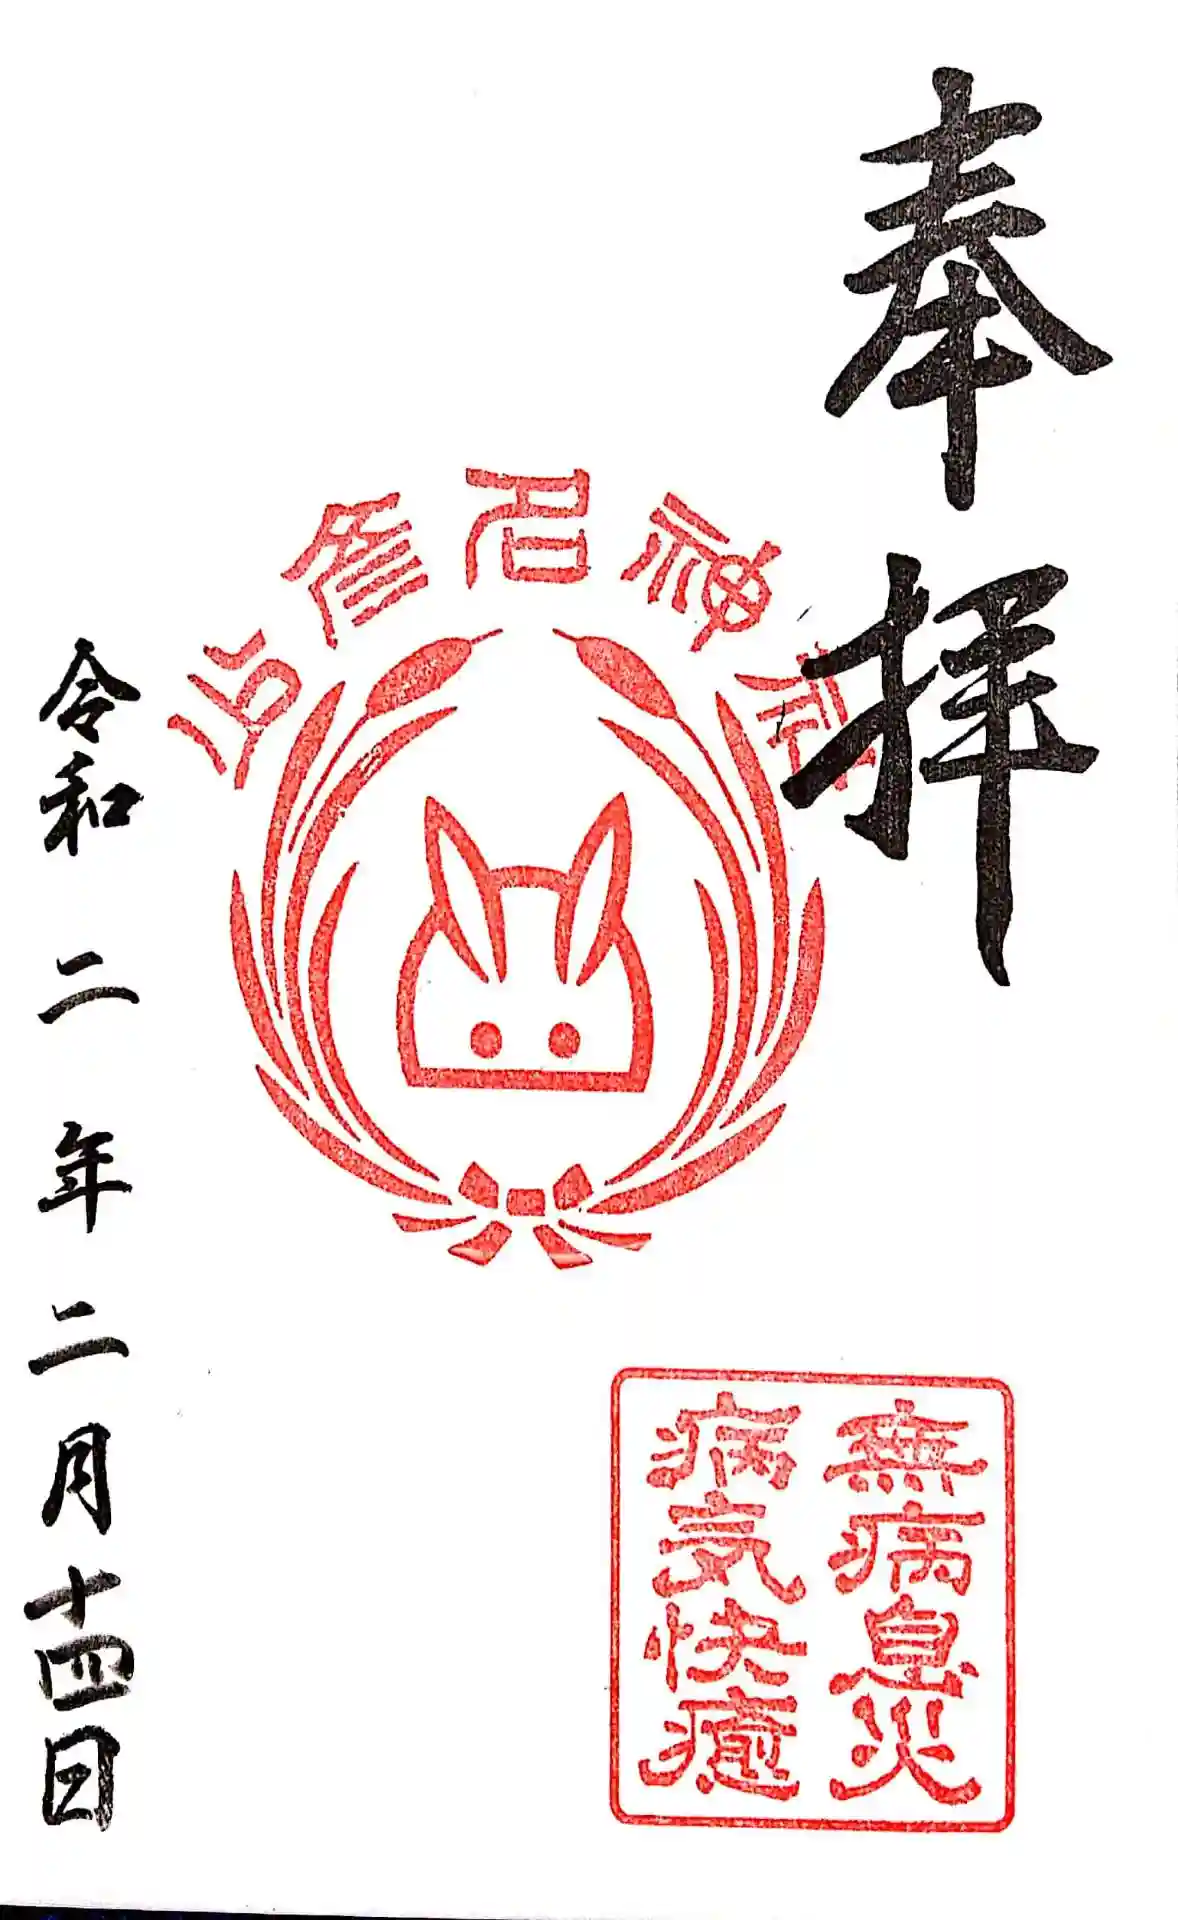 奉拝
神社
無病息災
病気快癒
令和二年二月十四日